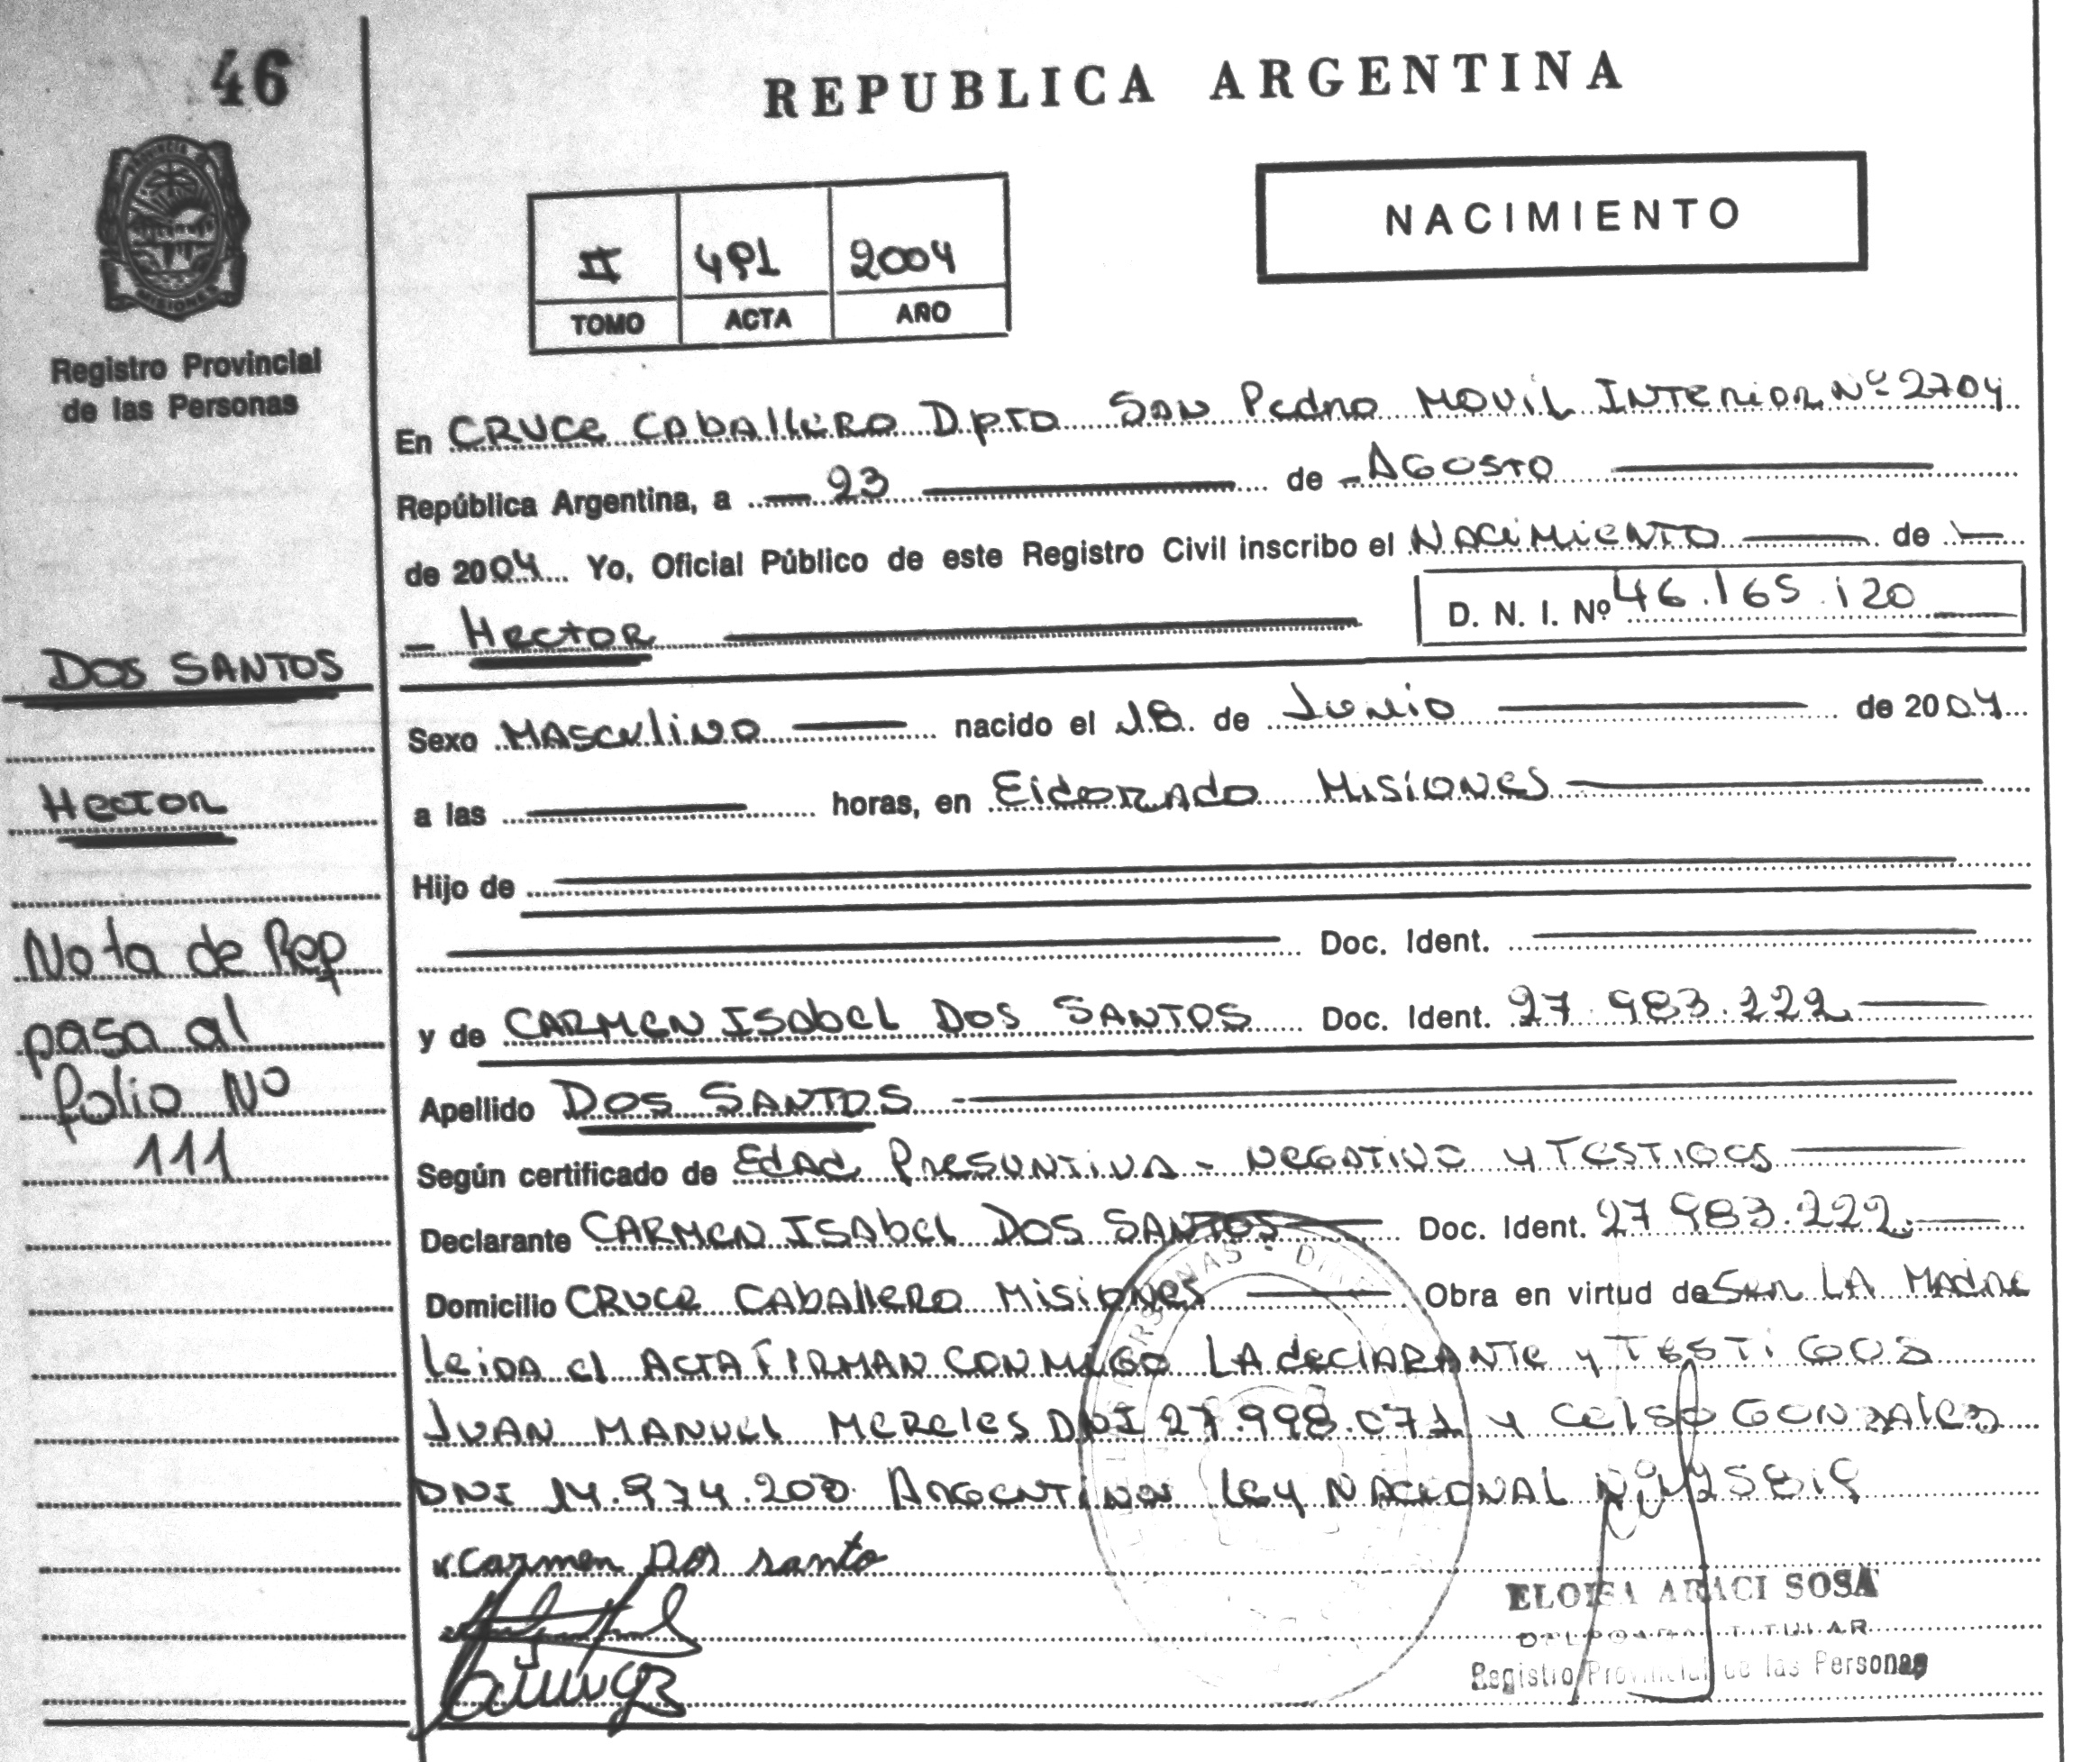 46
PROVINCIA DE
MISIONES
Registro Provincial
de las Personas
DOS SANTOS
Hector
Nota de Rep
pasa al
folio Nº
111
REPUBLICA ARGENTINA
NACIMIENTO
II 491 2004
TOMO ACTA AÑO
En CRUCE CABALLERO Dpto SAN Pedro MOVIL INTERIOR Nº 2704
República Argentina, a 23 de AGOSTO
de 2004 Yo, Oficial Público de este Registro Civil inscribo el NACIMIENTO de
Hector D. N. I. Nº 46.165.120
Sexo MASCULINO nacido el 18 de Junio de 2004
a las horas, en Eldorado Misiones
Hijo de
Doc. Ident.
y de CARMEN ISABEL DOS SANTOS Doc. Ident. 27.983.222
Apellido DOS SANTOS
Según certificado de Edad Presuntiva - Negativo y Testigos
Declarante CARMEN ISABEL DOS SANTOS Doc. Ident. 27.983.222
Domicilio CRUCE CABALLERO Misiones Obra en virtud de Ser LA MADRE
Leida el ACTA FIRMAN CONMIGO LA declARANTE y TESTIGOS
JUAN MANUEL MERELES DNI 27.998.071 y Celso GONZALES
DNI 14.974.200 ARGENTINOS Ley NACIONAL Nº 25819
Carmen Dos santo
ELOISA ARACI SOSA
TITULAR
Registro Provincial de las Personas